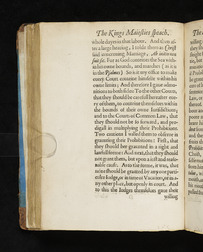 The Kings Maiesties speach.
whole dayes in that labour. And then af-
ter a large hearing, I tolde them as Christ
said concerning Mariage, Ab initio non
fuit sic. For as God conteines the Sea with-
in his owne bounds, and marches (as it is
in the Psalmes) So is it my office to make
euery Court conteine himselfe within his
owne limits; And therefore I gaue admo-
nitions to both sides: To the other Courts,
that they should be carefull hereafter eue-
ry of them, to conteine themselues within
the bounds of their owne Iurisdictions;
and to the Courts of Common Law, that
they should not be so forward, and pro-
digall in multiplying their Prohibitions.
Two cautions I willed them to obserue in
graunting their Prohibitions: First, that
they should bee graunted in a right and
lawfull forme: And next, that they should
not graunt them, but vpon a iust and reaso-
nable cause. As to the forme, it was, that
none should be graunted by any one parti-
cular Iudge, or in time of Vacation, or in a-
ny other place, but openly in Court. And
to this the Iudges themselues gaue their
willing